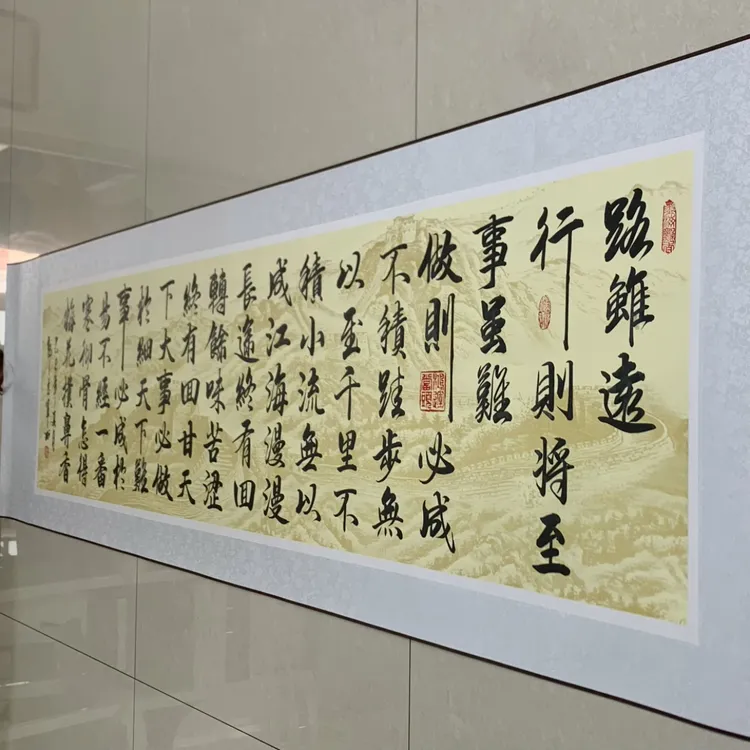 路雖遠
行則將至
事虽難
做則必成
不積跬步無
以至千里不
積小流無以
成江海漫漫
長途終有回
轉餘味苦澀
終有回甘天
下大事必做
於細天下難
事必成於
易不經一番
寒彻骨怎得
梅花撲鼻香